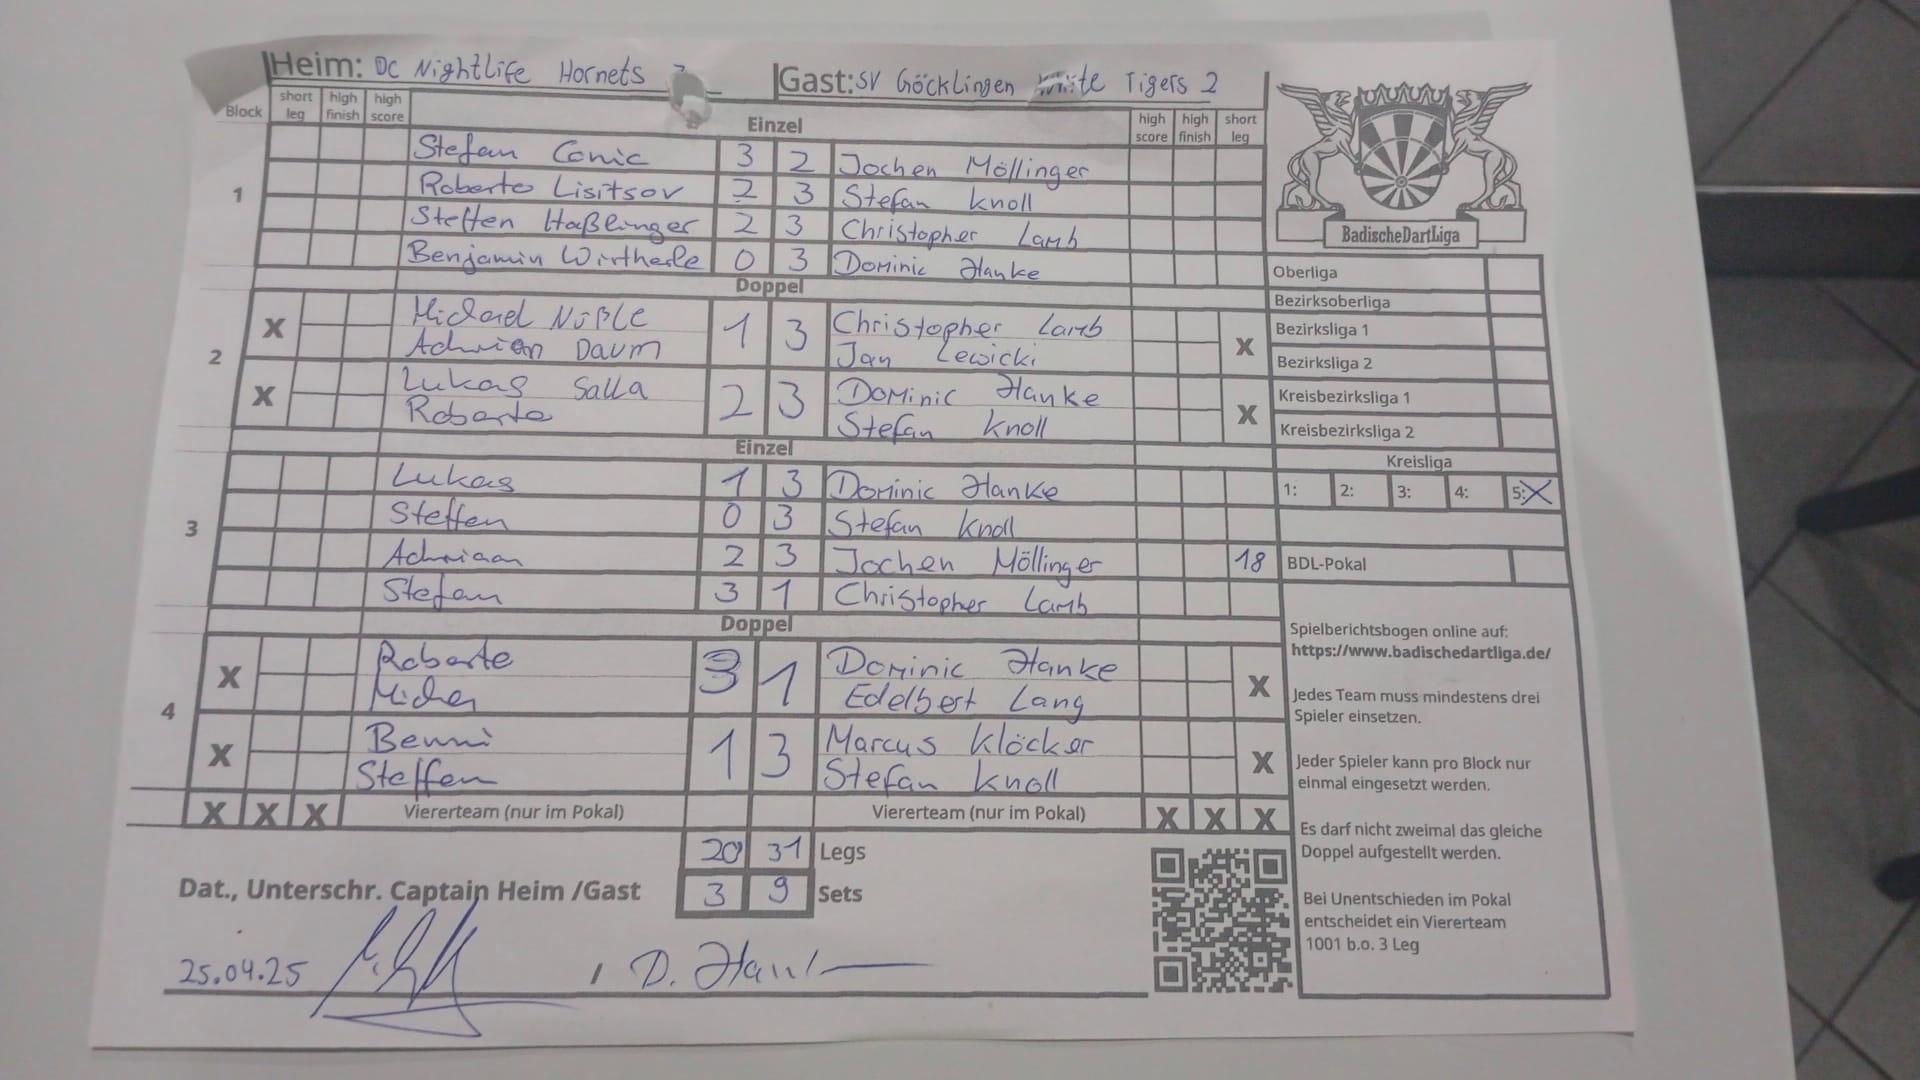 Heim: DC Nightlife Hornets
Gast: SV Göcklingen White Tigers 2
Block short leg high finish high score Einzel high score high finish short leg
1
Stefan Conic 3 2 Jochen Möllinger
Roberto Lisitsov 2 3 Stefan Knoll
Steffen Haßlinger 2 3 Christopher Lamb
Benjamin Wirtherle 0 3 Dominic Hanke
Doppel
2
X Michael Nüßle 1 3 Christopher Lamb X
Adrian Daum Jan Lewicki
X Lukas Salla 2 3 Dominic Hanke X
Roberto Stefan Knoll
Einzel
3
Lukas 1 3 Dominic Hanke
Steffen 0 3 Stefan Knoll
Adriaan 2 3 Jochen Möllinger 18
Stefan 3 1 Christopher Lamb
Doppel
4
X Roberto 3 1 Dominic Hanke X
Micha Edelbert Lang
X Benni 1 3 Marcus Klöcker X
Steffen Stefan Knoll
X X X Viererteam (nur im Pokal) Viererteam (nur im Pokal) X X X
20 31 Legs
3 9 Sets
Dat., Unterschr. Captain Heim /Gast
25.04.25 / D. Hanke
BadischeDartLiga
Oberliga
Bezirksoberliga
Bezirksliga 1
Bezirksliga 2
Kreisbezirksliga 1
Kreisbezirksliga 2
Kreisliga
1: 2: 3: 4: 5: X
BDL-Pokal
Spielberichtsbogen online auf:
https://www.badischedartliga.de/
Jedes Team muss mindestens drei
Spieler einsetzen.
Jeder Spieler kann pro Block nur
einmal eingesetzt werden.
Es darf nicht zweimal das gleiche
Doppel aufgestellt werden.
Bei Unentschieden im Pokal
entscheidet ein Viererteam
1001 b.o. 3 Leg